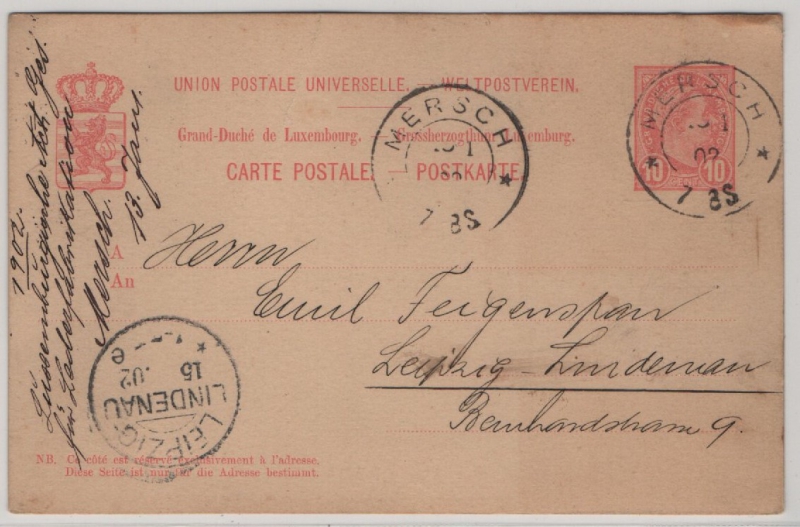 UNION POSTALE UNIVERSELLE. — WELTPOSTVEREIN.
Grand-Duché de Luxembourg. — Grossherzogthum Luxemburg.
CARTE POSTALE. — POSTKARTE.
MERSCH
7 8S
MERSCH
02
7 8S
10 10
1902.
Luxemburgische Act. Ges.
für Lederfabrikation
Mersch.
13. Jan.
A
An
Herrn
Emil Feigenspan
Leipzig-Lindenau
Bernhardstrasse 9.
LEIPZIG-
LINDENAU
15
.02
e
NB. Ce côté est réservé exclusivement à l'adresse.
Diese Seite ist nur für die Adresse bestimmt.